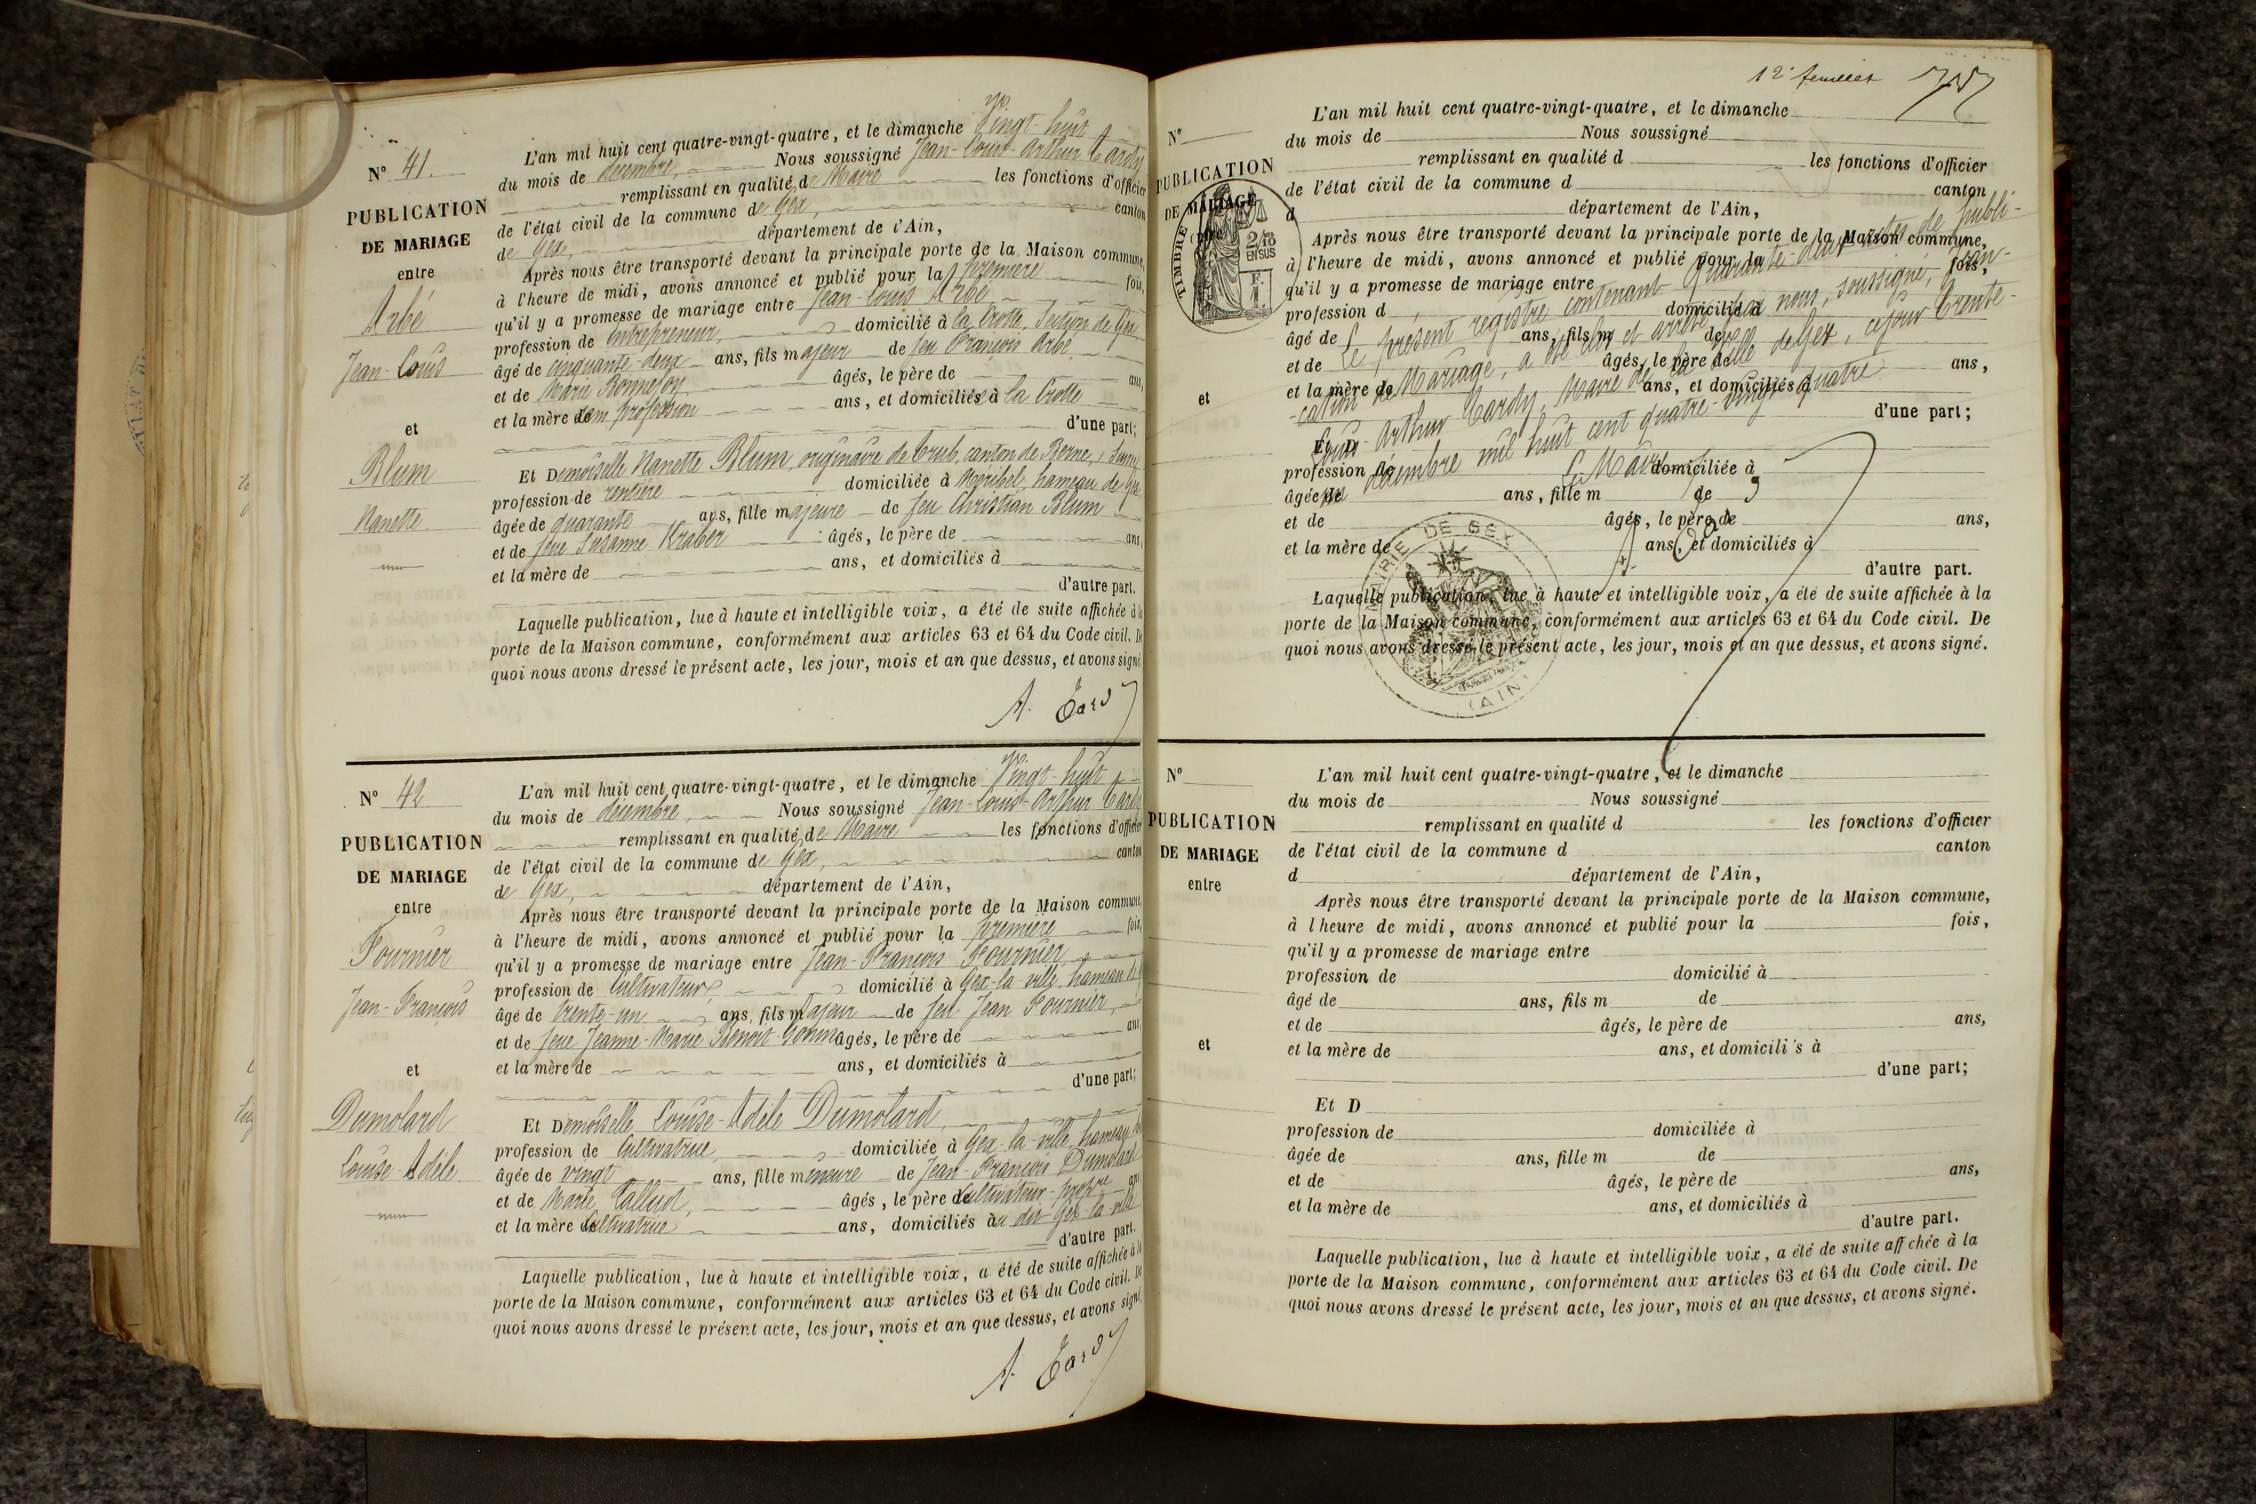 N° 41.
PUBLICATION
DE MARIAGE
entre
Arbé
Jean-Louis
et
Blum
Nanette
L'an mil huit cent quatre-vingt-quatre, et le dimanche Vingt-huit
du mois de décembre, Nous soussigné Jean-Louis-Arthur Tardy
remplissant en qualité de Maire les fonctions d'officier
de l'état civil de la commune de Gex, canton
de Gex, département de l'Ain,
Après nous être transporté devant la principale porte de la Maison commune,
à l'heure de midi, avons annoncé et publié pour la première fois,
qu'il y a promesse de mariage entre Jean-Louis Arbé
profession de entrepreneur, domicilié à la Crotte, Section de Gex
âgé de cinquante-deux ans, fils majeur de feu François Arbé
et de Marie âgés, le père de ans,
et la mère de sans profession ans, et domiciliés à la Crotte
d'une part;
Et Demoiselle Nanette Blum, originaire de Trub, canton de Berne,
profession de rentière domiciliée à Méribel, hameau de Gex
âgée de quarante ans, fille majeure de feu Christian Blum
et de feue Susanne Kraber âgés, le père de ans,
et la mère de ans, et domiciliés à
d'autre part.
Laquelle publication, lue à haute et intelligible voix, a été de suite affichée à la
porte de la Maison commune, conformément aux articles 63 et 64 du Code civil. De
quoi nous avons dressé le présent acte, les jour, mois et an que dessus, et avons signé.
A. Tardy
N° 42
PUBLICATION
DE MARIAGE
entre
Fournier
Jean-François
et
Dumolard
Louise-Adèle
L'an mil huit cent quatre-vingt-quatre, et le dimanche Vingt-huit
du mois de décembre, Nous soussigné Jean-Louis-Arthur Tardy
remplissant en qualité de Maire les fonctions d'officier
de l'état civil de la commune de Gex, canton
de Gex, département de l'Ain,
Après nous être transporté devant la principale porte de la Maison commune,
à l'heure de midi, avons annoncé et publié pour la première fois,
qu'il y a promesse de mariage entre Jean-François Fournier,
profession de Cultivateur, domicilié à Gex-la-ville, hameau de
âgé de trente-un ans, fils majeur de feu Jean Fournier,
et de feue Jeanne-Marie Benoit-Gonin âgés, le père de ans,
et la mère de ans, et domiciliés à
d'une part;
Et Demoiselle Louise-Adèle Dumolard,
profession de Cultivatrice, domiciliée à Gex-la-ville, hameau de
âgée de vingt ans, fille mineure de Jean-François Dumolard
et de Marie âgés, le père de Cultivateur-propre ans,
et la mère de Cultivatrice ans, domiciliés à au dit Gex-la-ville
d'autre part.
Laquelle publication, lue à haute et intelligible voix, a été de suite affichée à la
porte de la Maison commune, conformément aux articles 63 et 64 du Code civil. De
quoi nous avons dressé le présent acte, les jour, mois et an que dessus, et avons signé.
A. Tardy
12e feuillet
N°
PUBLICATION
DE MARIAGE
TIMBRE
2/10
EN SUS
et
L'an mil huit cent quatre-vingt-quatre, et le dimanche
du mois de Nous soussigné
remplissant en qualité d les fonctions d'officier
de l'état civil de la commune d canton
d département de l'Ain,
Après nous être transporté devant la principale porte de la Maison commune,
à l'heure de midi, avons annoncé et publié pour la fois,
qu'il y a promesse de mariage entre
profession d domicilié à
âgé de ans, fils m de
et de âgés, le père de
et la mère de ans, et domiciliés à ans,
d'une part;
Et D
profession de domiciliée à
âgée de ans, fille m de
et de âgés, le père de ans,
et la mère de ans, et domiciliés à
d'autre part.
Le présent registre contenant quarante-deux actes de publi-
-cation de Mariage, a été clos et arrêté par nous, soussigné, Jean-
Louis-Arthur Tardy, Maire de la Ville de Gex, ce jour trente-
un décembre mil huit cent quatre-vingt-quatre
Le Maire
A. Tardy
MAIRIE DE GEX
(AIN)
Laquelle publication, lue à haute et intelligible voix, a été de suite affichée à la
porte de la Maison commune, conformément aux articles 63 et 64 du Code civil. De
quoi nous avons dressé le présent acte, les jour, mois et an que dessus, et avons signé.
N°
PUBLICATION
DE MARIAGE
entre
et
L'an mil huit cent quatre-vingt-quatre, et le dimanche
du mois de Nous soussigné
remplissant en qualité d les fonctions d'officier
de l'état civil de la commune d canton
d département de l'Ain,
Après nous être transporté devant la principale porte de la Maison commune,
à l'heure de midi, avons annoncé et publié pour la fois,
qu'il y a promesse de mariage entre
profession de domicilié à
âgé de ans, fils m de
et de âgés, le père de ans,
et la mère de ans, et domicili s à
d'une part;
Et D
profession de domiciliée à
âgée de ans, fille m de
et de âgés, le père de ans,
et la mère de ans, et domiciliés à
d'autre part.
Laquelle publication, lue à haute et intelligible voix, a été de suite aff chée à la
porte de la Maison commune, conformément aux articles 63 et 64 du Code civil. De
quoi nous avons dressé le présent acte, les jour, mois et an que dessus, et avons signé.